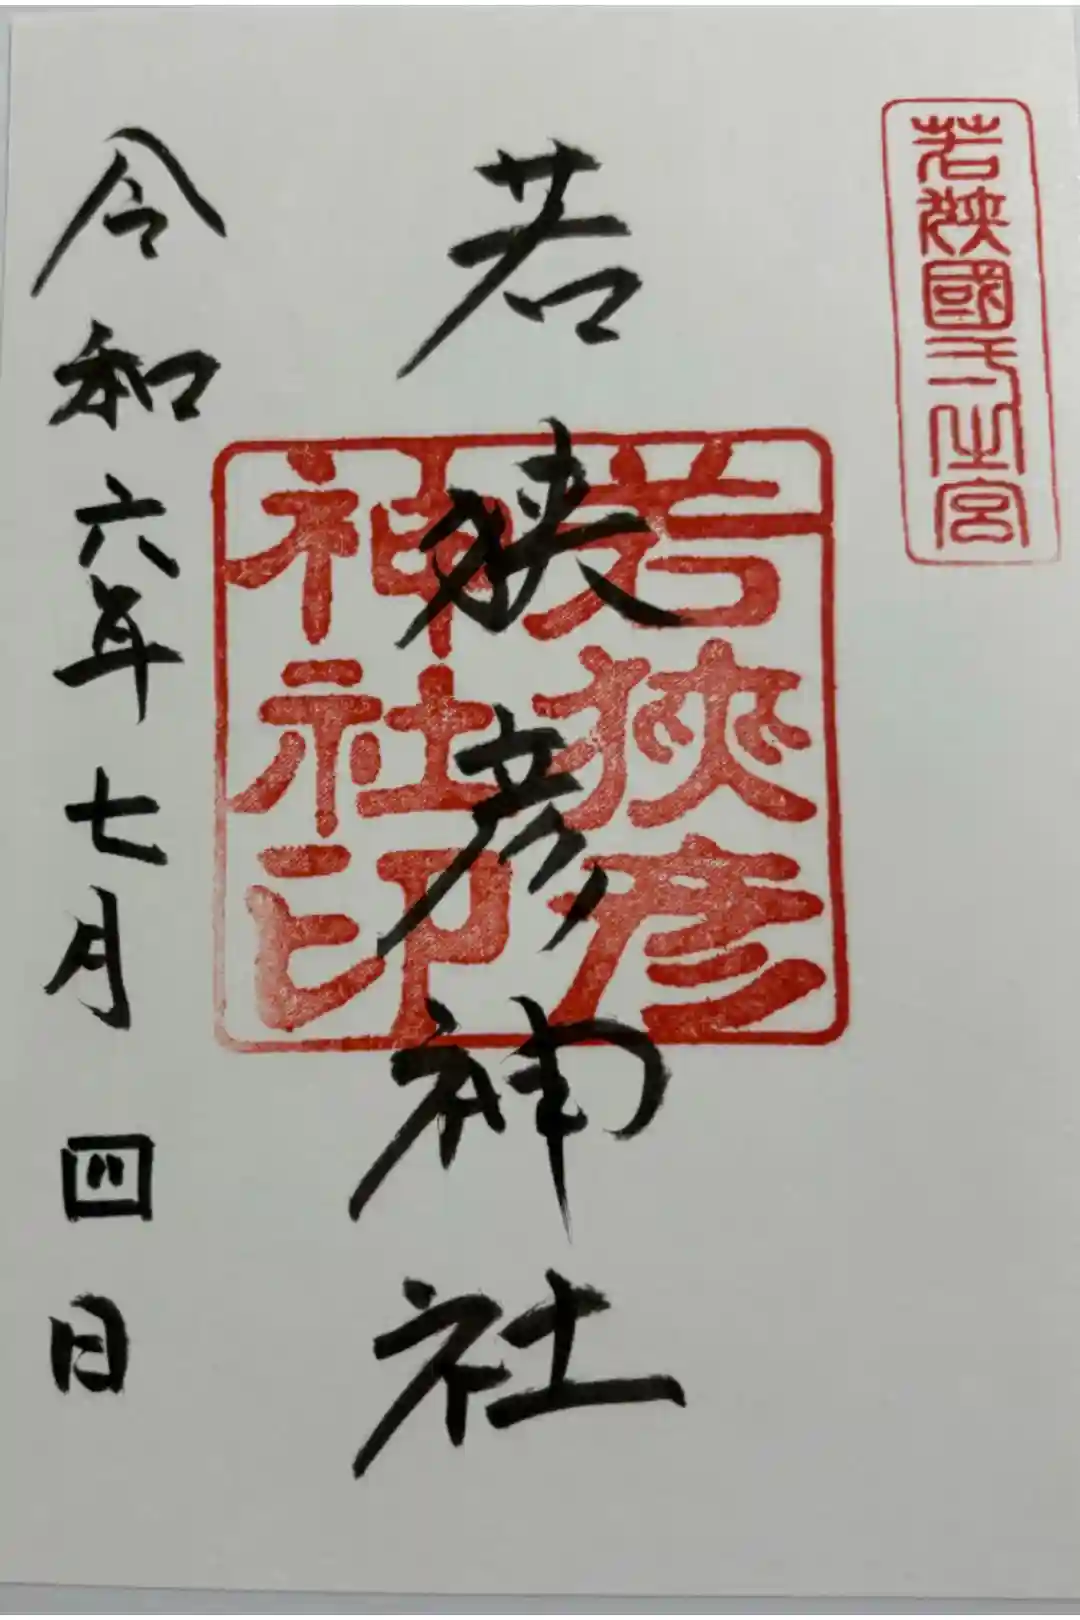 若狹國一之宮
若狹彦神社印
若狭彦神社
令和六年七月四日